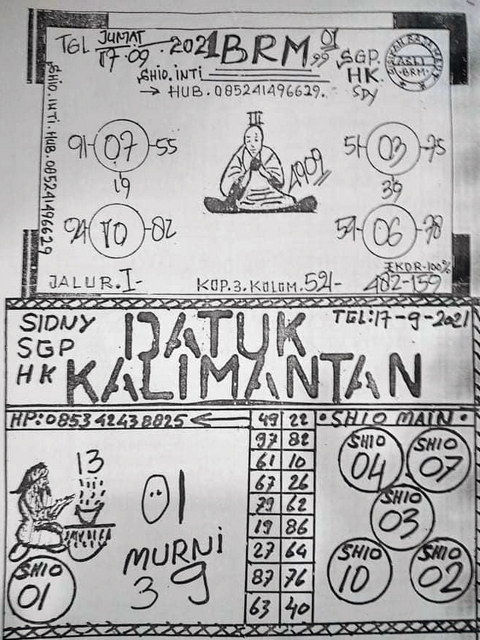 TGL JUMAT
17-09-2021 BRM 01
99
SHIO.INTI
→ HUB.085241496629.
SGP.
HK.
SDY
ASLI
-BRM-
SHIO.INTI.HUB.085241496629
91-07-55
19
94-10-82
4909
51-03-75
39
59-06-78
JALUR.I-
KOP.3.KOLOM.524-
EKOR-100%
482-159
SIDNY
SGP
HK
DATUK
KALIMANTAN
TGL:17-9-2021
HP:085342438825
13
01
MURNI
3 9
SHIO
01
49 22
97 82
61 10
67 26
79 62
19 86
27 64
87 76
63 40
•SHIO MAIN•
SHIO
04
SHIO
07
SHIO
03
SHIO
10
SHIO
02